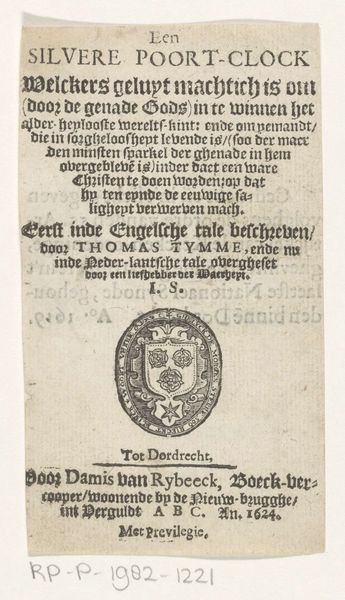 Een
SILVERE POORT-CLOCK
Welckers geluyt machtich is om
(door de genade Gods) in te winnen het
alder-heylooste werelts-kint: ende om yemandt/
die in sorgheloosheyt levende is/(soo der maer
den minsten sparkel der ghenade in hem
overgeblevē is) inder daet een ware
Christen te doen worden: op dat
hy ten eynde de eeuwige sa-
ligheyt verwerven mach.
Eerst inde Engelsche tale beschreven/
door THOMAS TYMME, ende nu
inde Neder-lantsche tale overgheset
door een liefdebber der Waerheyt.
I. S.
Tot Dordrecht,
Door Damis van Rybeeck, Boeck-ver-
cooper/woonende by de Nieuw-brugghe/
int Verguldt A B C. An. 1624.
Met Previlegie.
RP-P-1982-1221